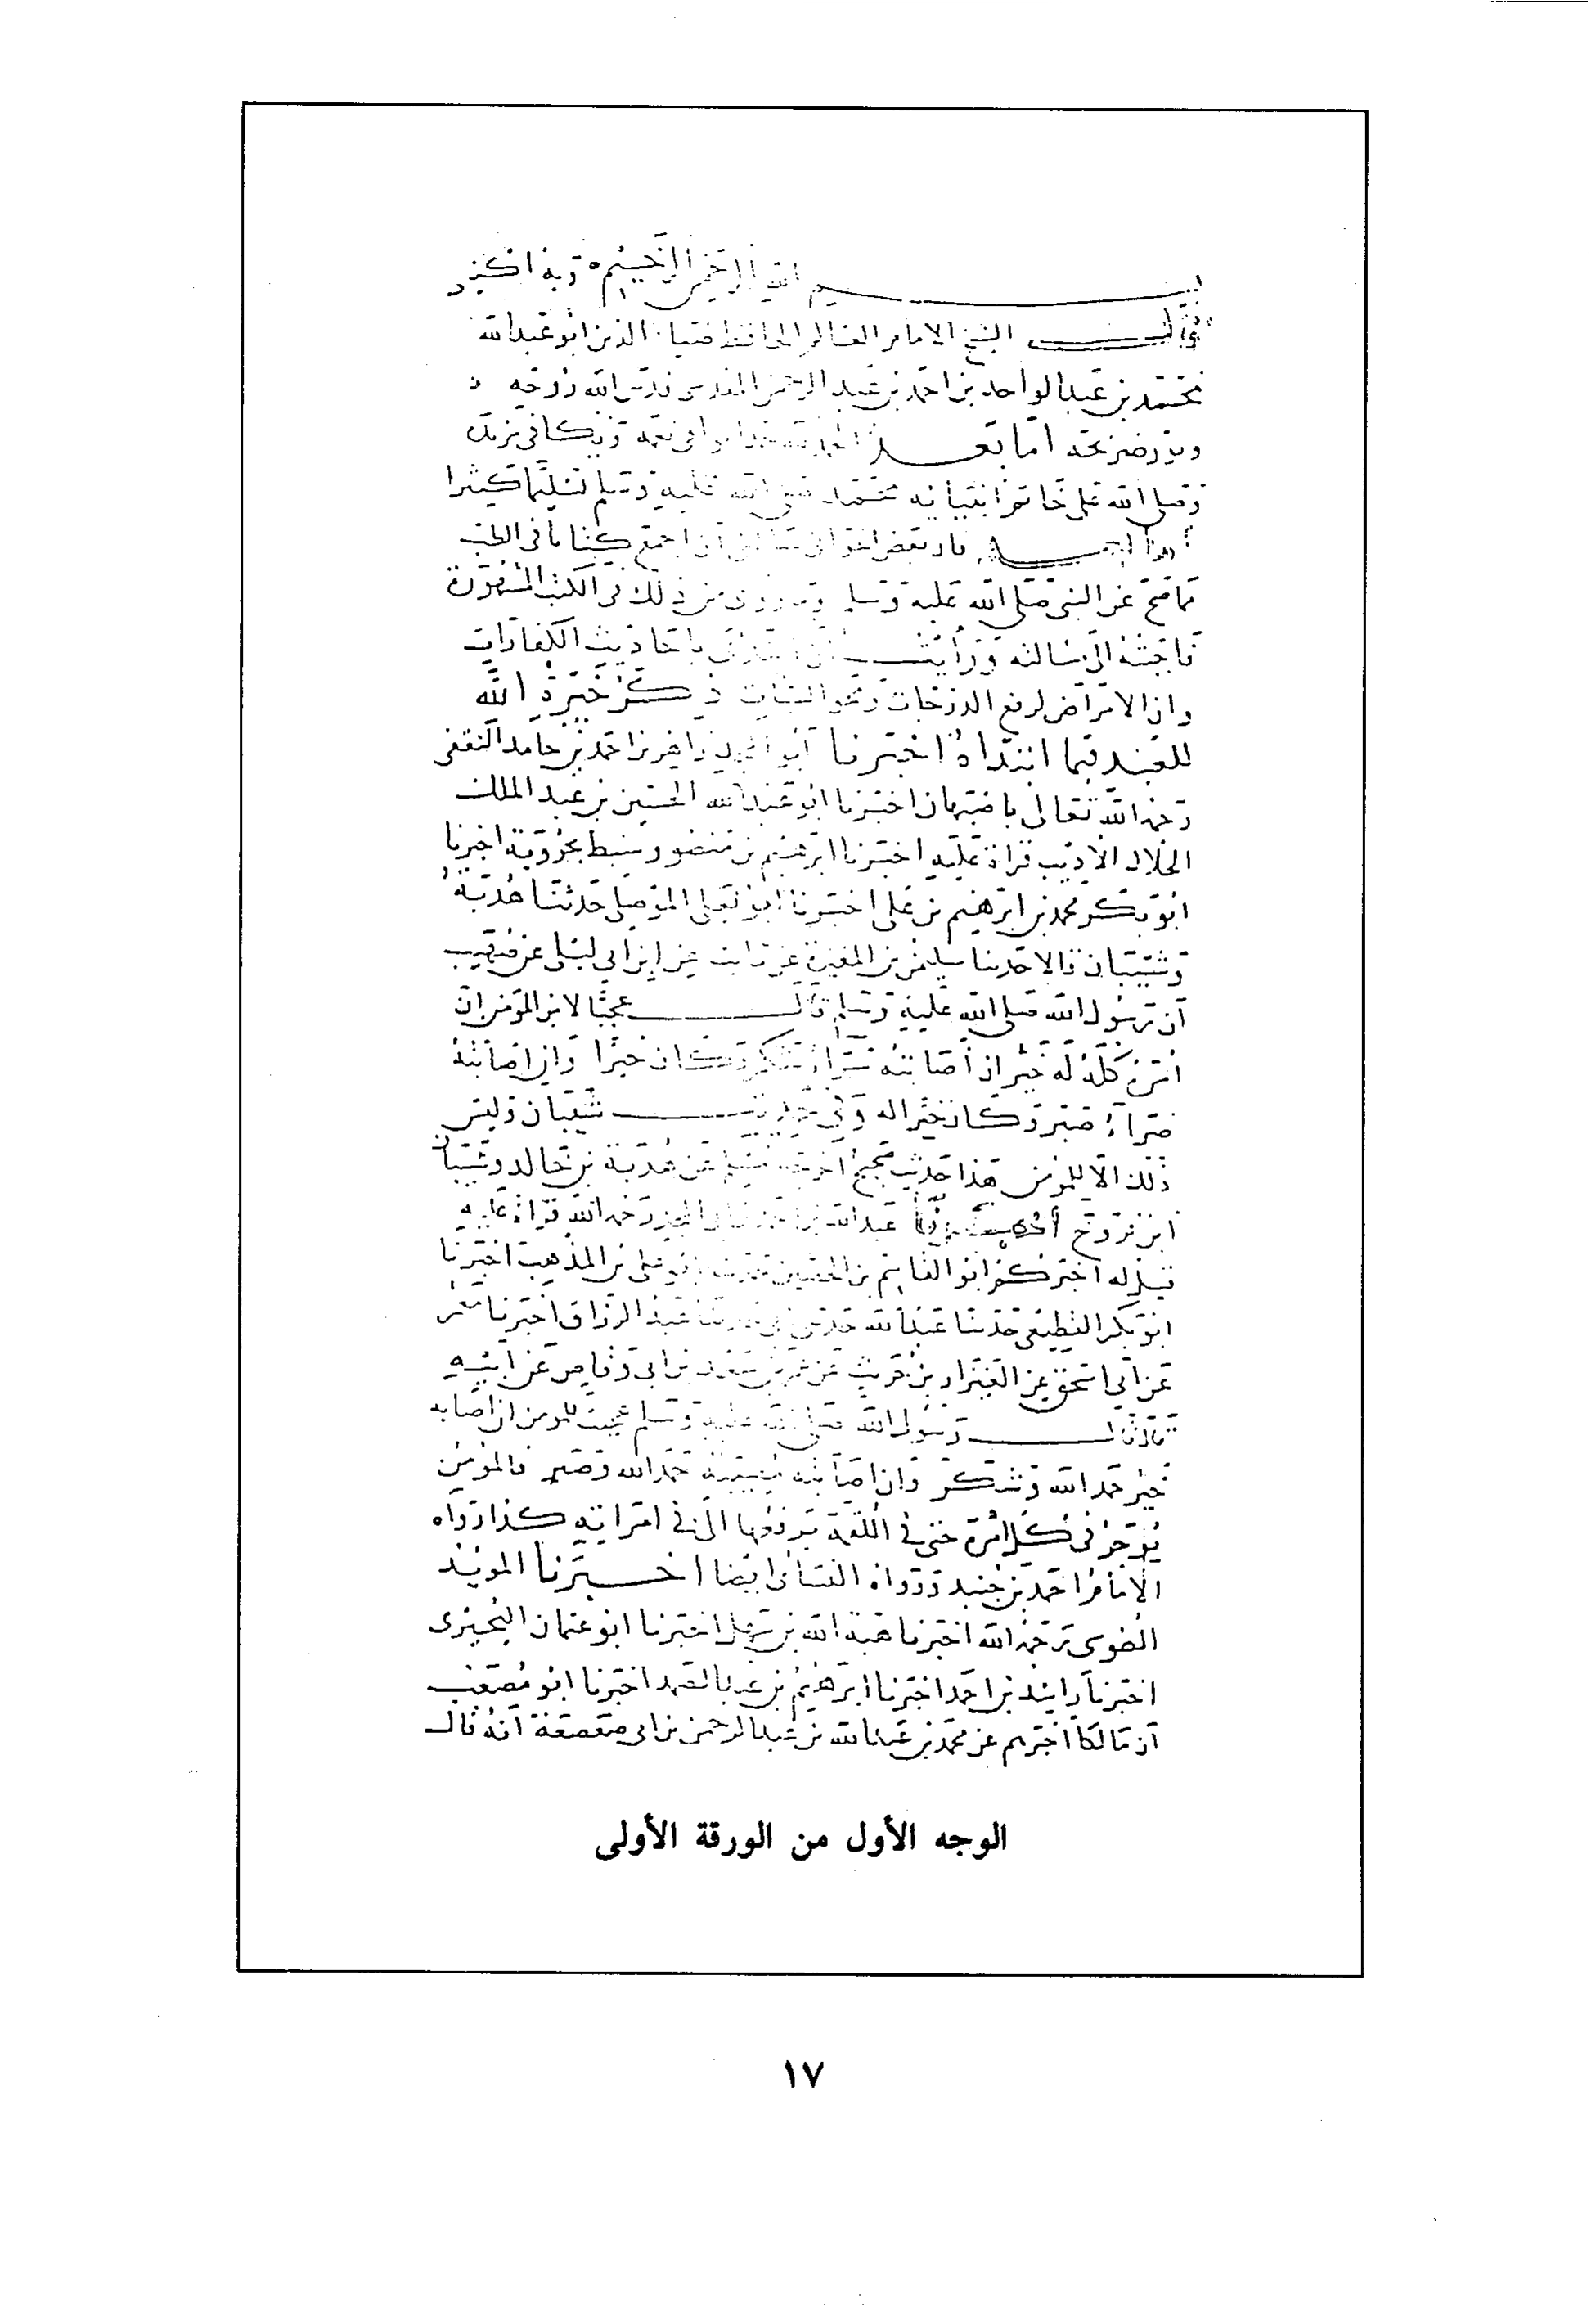 بسم الله الرحمن الرحيم وبه
قال الشيخ الامام العالم الحافظ ضيا الدين ابو عبد الله
محمد بن عبد الواحد بن احمد بن عبد الرحمن المقدسي قدس الله روحه
ونور ضريحه اما بعد الحمد لله حمدا يوافي نعمه
وصلى الله على خاتم انبيائه محمد صلى الله عليه وسلم تسليما كثيرا
فان بعض اخواني سالني ان اجمع كتابا في الطب
مما صح عن النبي صلى الله عليه وسلم من ذلك في الكتب المشهورة
فاجبته الى سالته ورأيت ان باحاديث الكفارات
وان الامراض لرفع الدرجات ومحو السيات ذكر خيرة الله
للعبد فيما ابتداه اخبرنا ابو المجد زاهر بن احمد بن حامد الثقفي
رحمه الله تعالى باصبهان اخبرنا ابو عبد الله الحسين بن عبد الملك
الخلال الاديب قراة عليه اخبرنا ابرهيم بن منصور سبط بحرويه اخبرنا
ابو بكر محمد بن ابرهيم بن علي اخبرنا ابو يعلى الموصلي حدثنا هدبة
وشيبان قالا حدثنا سليمن بن المغيرة عن ثابت عن ابن ابي ليلى عن صهيب
ان رسول الله صلى الله عليه وسلم قال عجبا لامر المؤمن ان
امره كله له خير ان اصابته سراء شكر وكان خيرا وان اصابته
ضراء صبر وكان خيرا له وفي حديث شيبان وليس
ذلك الا للمؤمن هذا حديث صحيح اخرجه مسلم عن هدبة بن خالد وشيبان
ابن فروخ اخبرنا عبد الله بن احمد رحمه الله قراة عليه
قيل له اخبركم ابو القاسم بن الحصين ابو علي بن المذهب اخبرنا
ابو بكر القطيعي حدثنا عبد الله حدثني ابي حدثنا عبد الرزاق اخبرنا معمر
عن ابي اسحق عن العيزار بن حريث عن عمر بن سعد بن ابي وقاص عن ابيه
قال قال رسول الله صلى الله عليه وسلم عجبت للمومن ان اصابه
خير حمد الله وشكر وان اصابته مصيبة حمد الله وصبر فالمؤمن
يؤجر في كل امره حتى في اللقمة يرفعها الى في امراته كذا رواه
الامام احمد بن حنبل ورواه النسائي ايضا اخبرنا المويد
الطوسي رحمه الله اخبرنا هبة الله بن سهل اخبرنا ابو عثمان البحيري
اخبرنا زاهد بن احمد اخبرنا ابرهيم بن عبد الصمد اخبرنا ابو مصعب
ان مالكا اخبرهم عن محمد بن عبد الله بن عبد الرحمن بن ابي صعصعة انه قال
الوجه الأول من الورقة الأولى
١٧